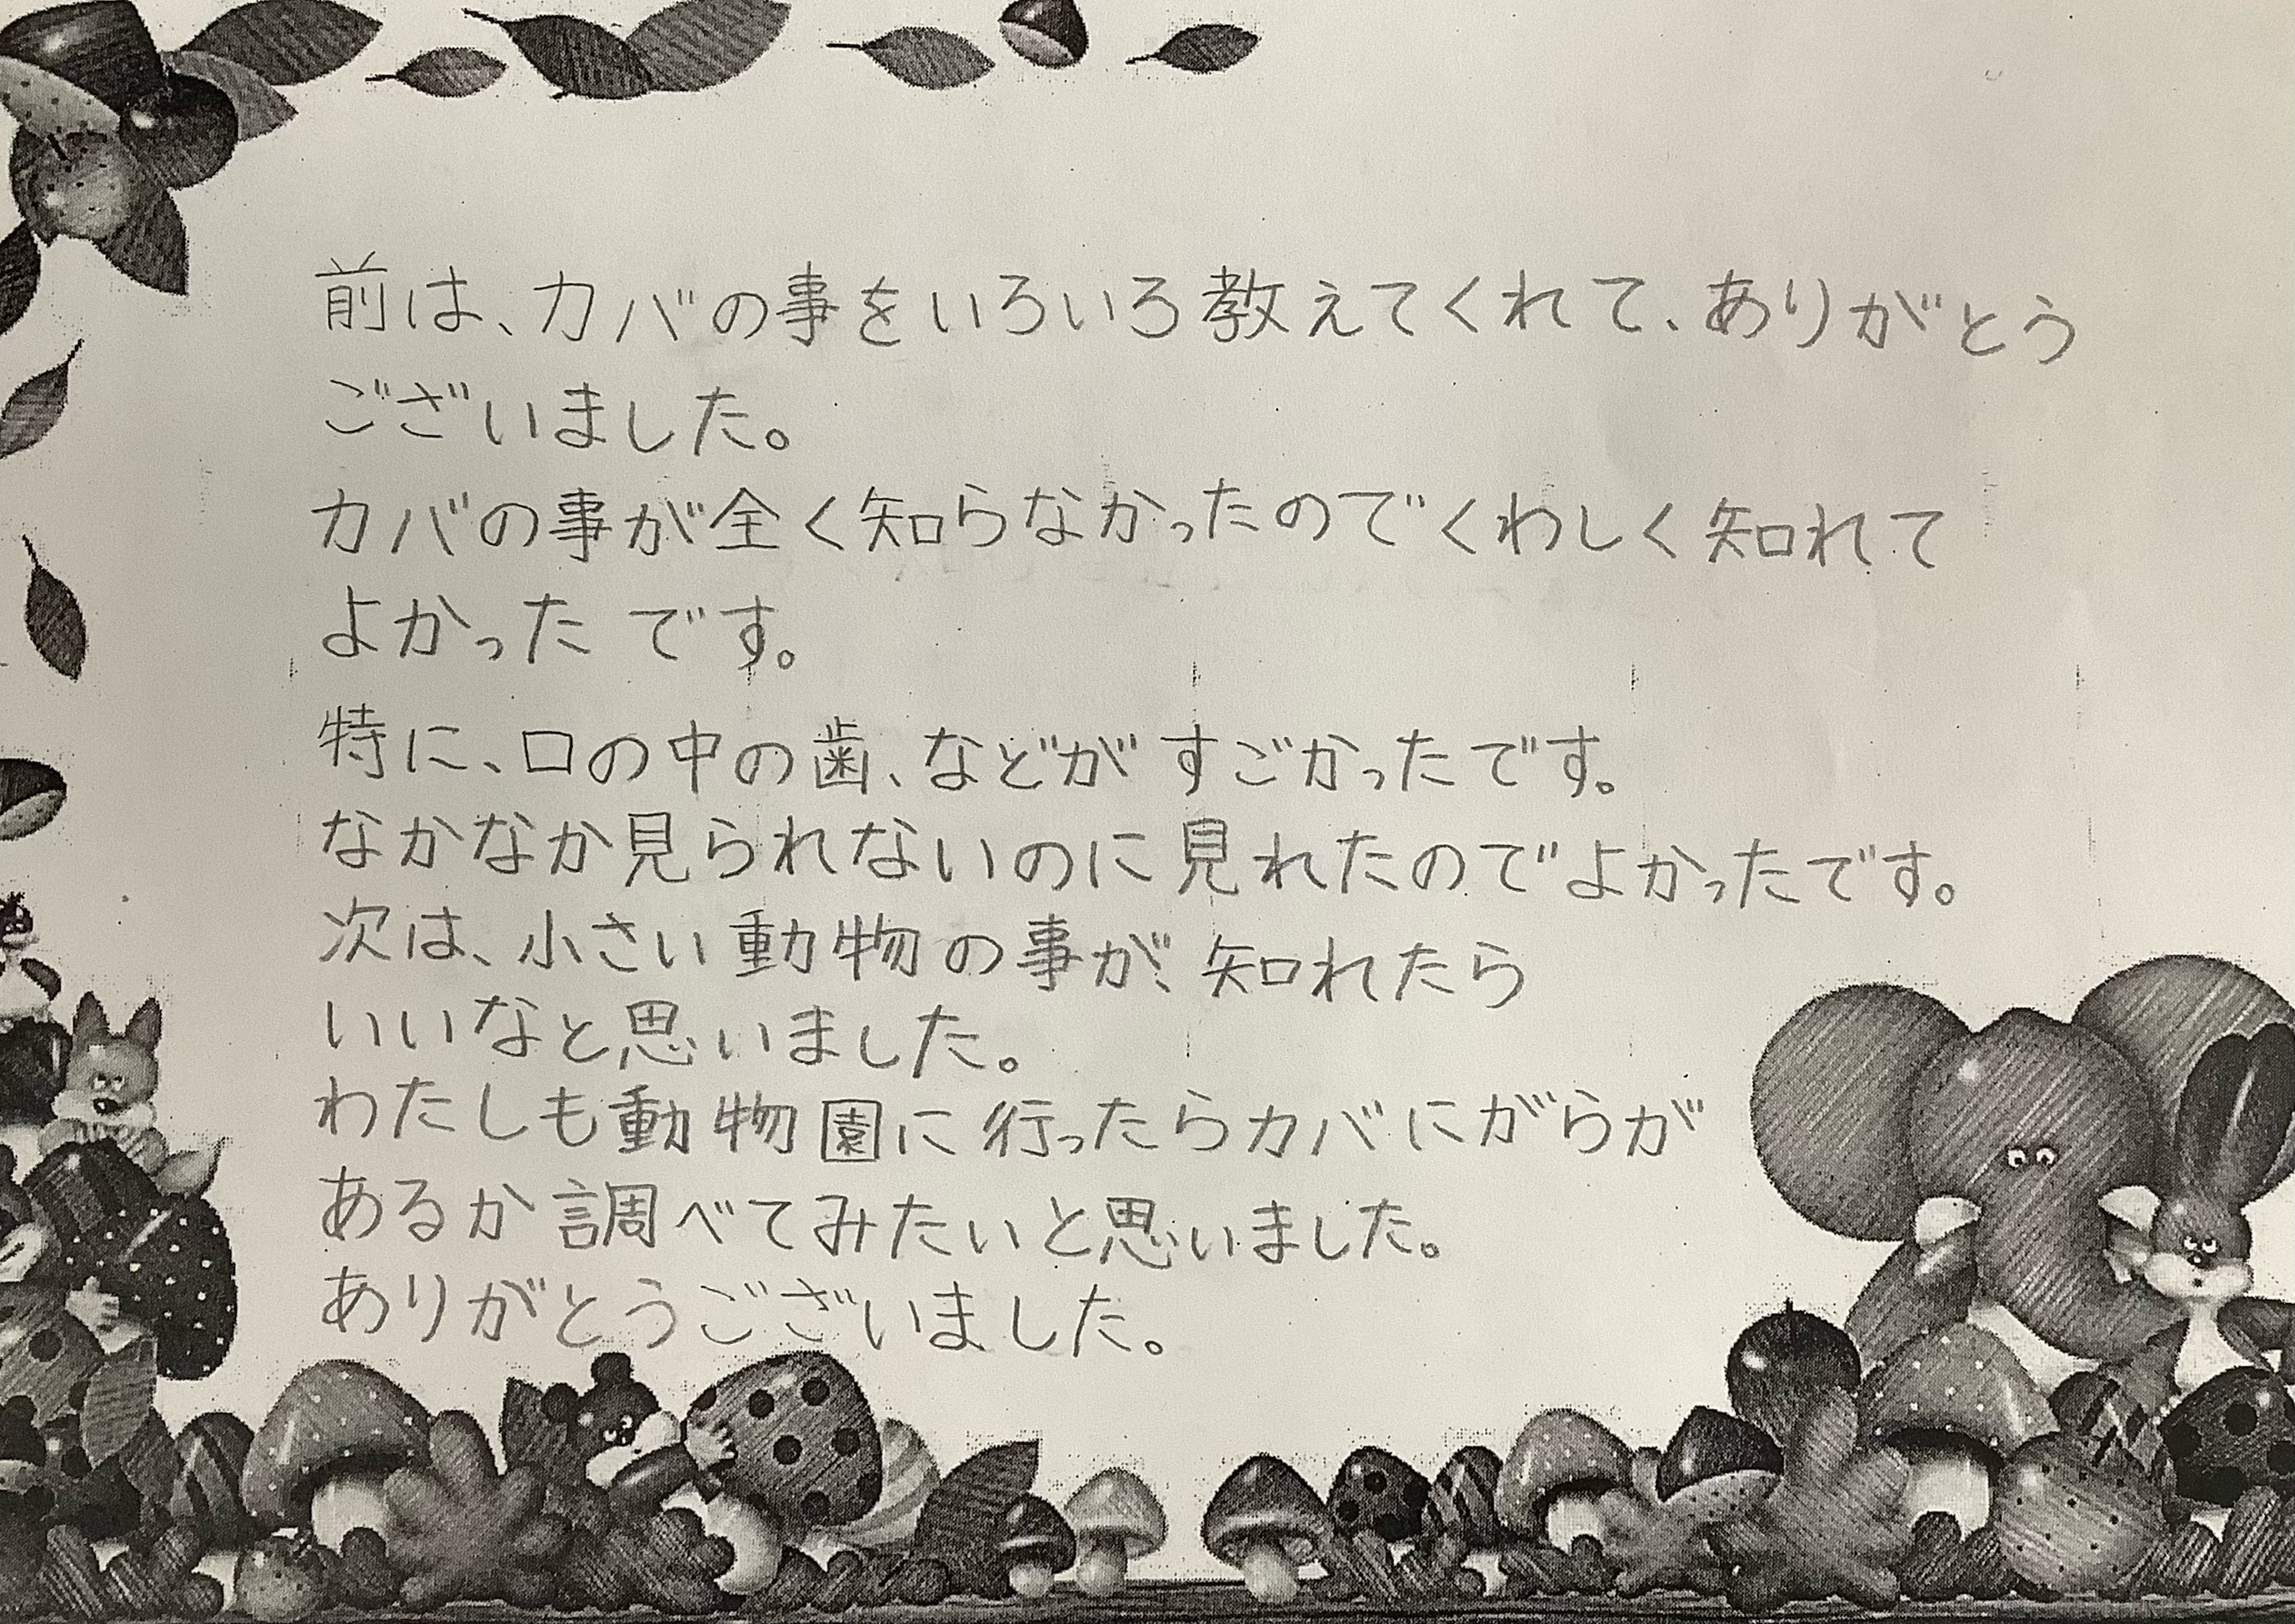 前は、カバの事をいろいろ教えてくれて、ありがとう
ございました。
カバの事が全く知らなかったのでくわしく知れて
よかったです。
特に、口の中の歯、などがすごかったです。
なかなか見られないのに見れたのでよかったです。
次は、小さい動物の事が、知れたら
いいなと思いました。
わたしも動物園に行ったらカバにがらが
あるか調べてみたいと思いました。
ありがとうございました。